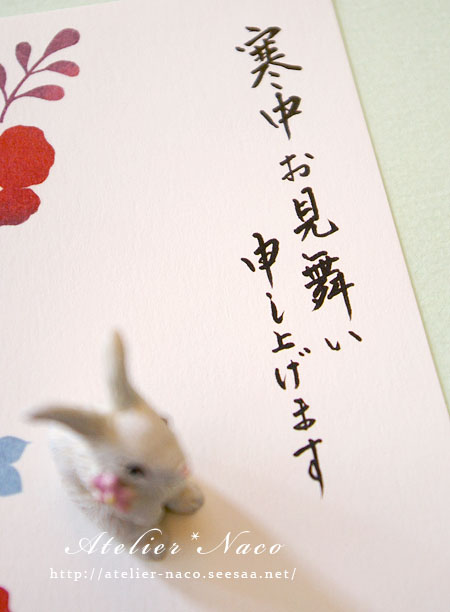 寒中お見舞い
申し上げます
Atelier*Naco
http://atelier-naco.seesaa.net/